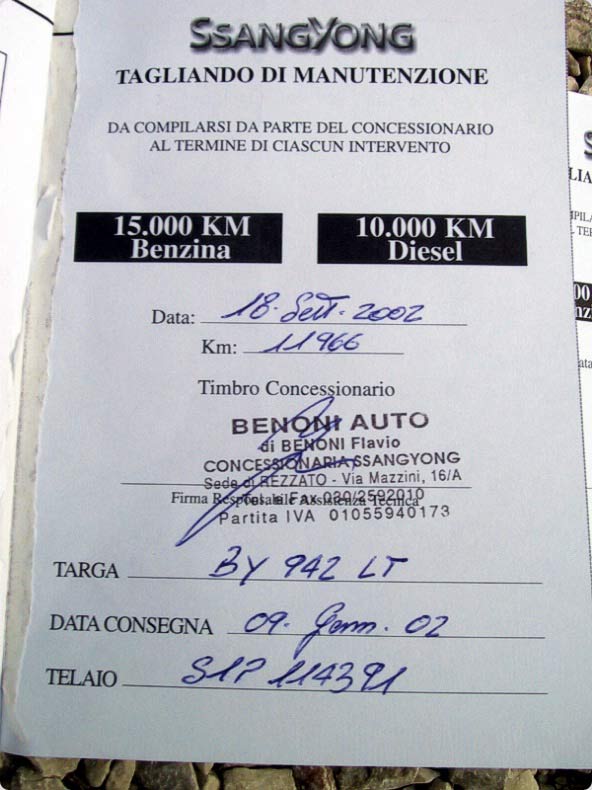 SSANGYONG
TAGLIANDO DI MANUTENZIONE
DA COMPILARSI DA PARTE DEL CONCESSIONARIO
AL TERMINE DI CIASCUN INTERVENTO
15.000 KM
Benzina
10.000 KM
Diesel
Data: 18. Sett. 2002
Km: 11966
Timbro Concessionario
BENONI AUTO
di BENONI Flavio
CONCESSIONARIA SSANGYONG
Sede di REZZATO - Via Mazzini, 16/A
Tel. e Fax 030/2592010
Firma Responsabile Assistenza Tecnica
Partita IVA 01055940173
TARGA BY 942 LT
DATA CONSEGNA 09. Genn. 02
TELAIO S1P 114391